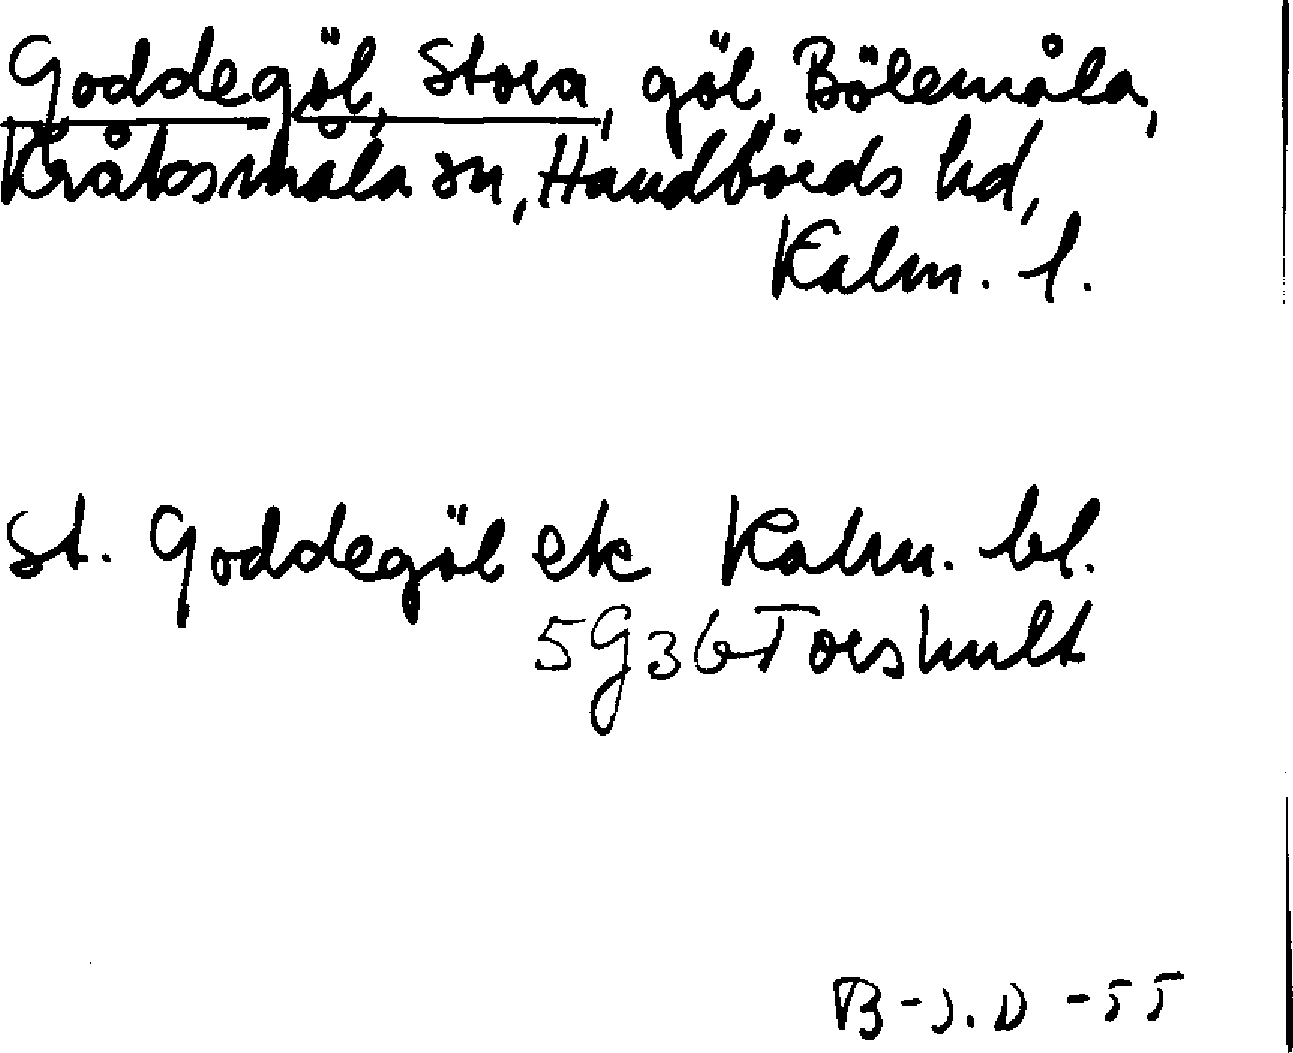 Goddegöl, Stora, göl, Bölemåla,
Kråksmåla sn, Handbörds hd,
Kalm. l.
St. Goddegöl ek Kalm. bl.
5G36 Torshult
B-J.D -55